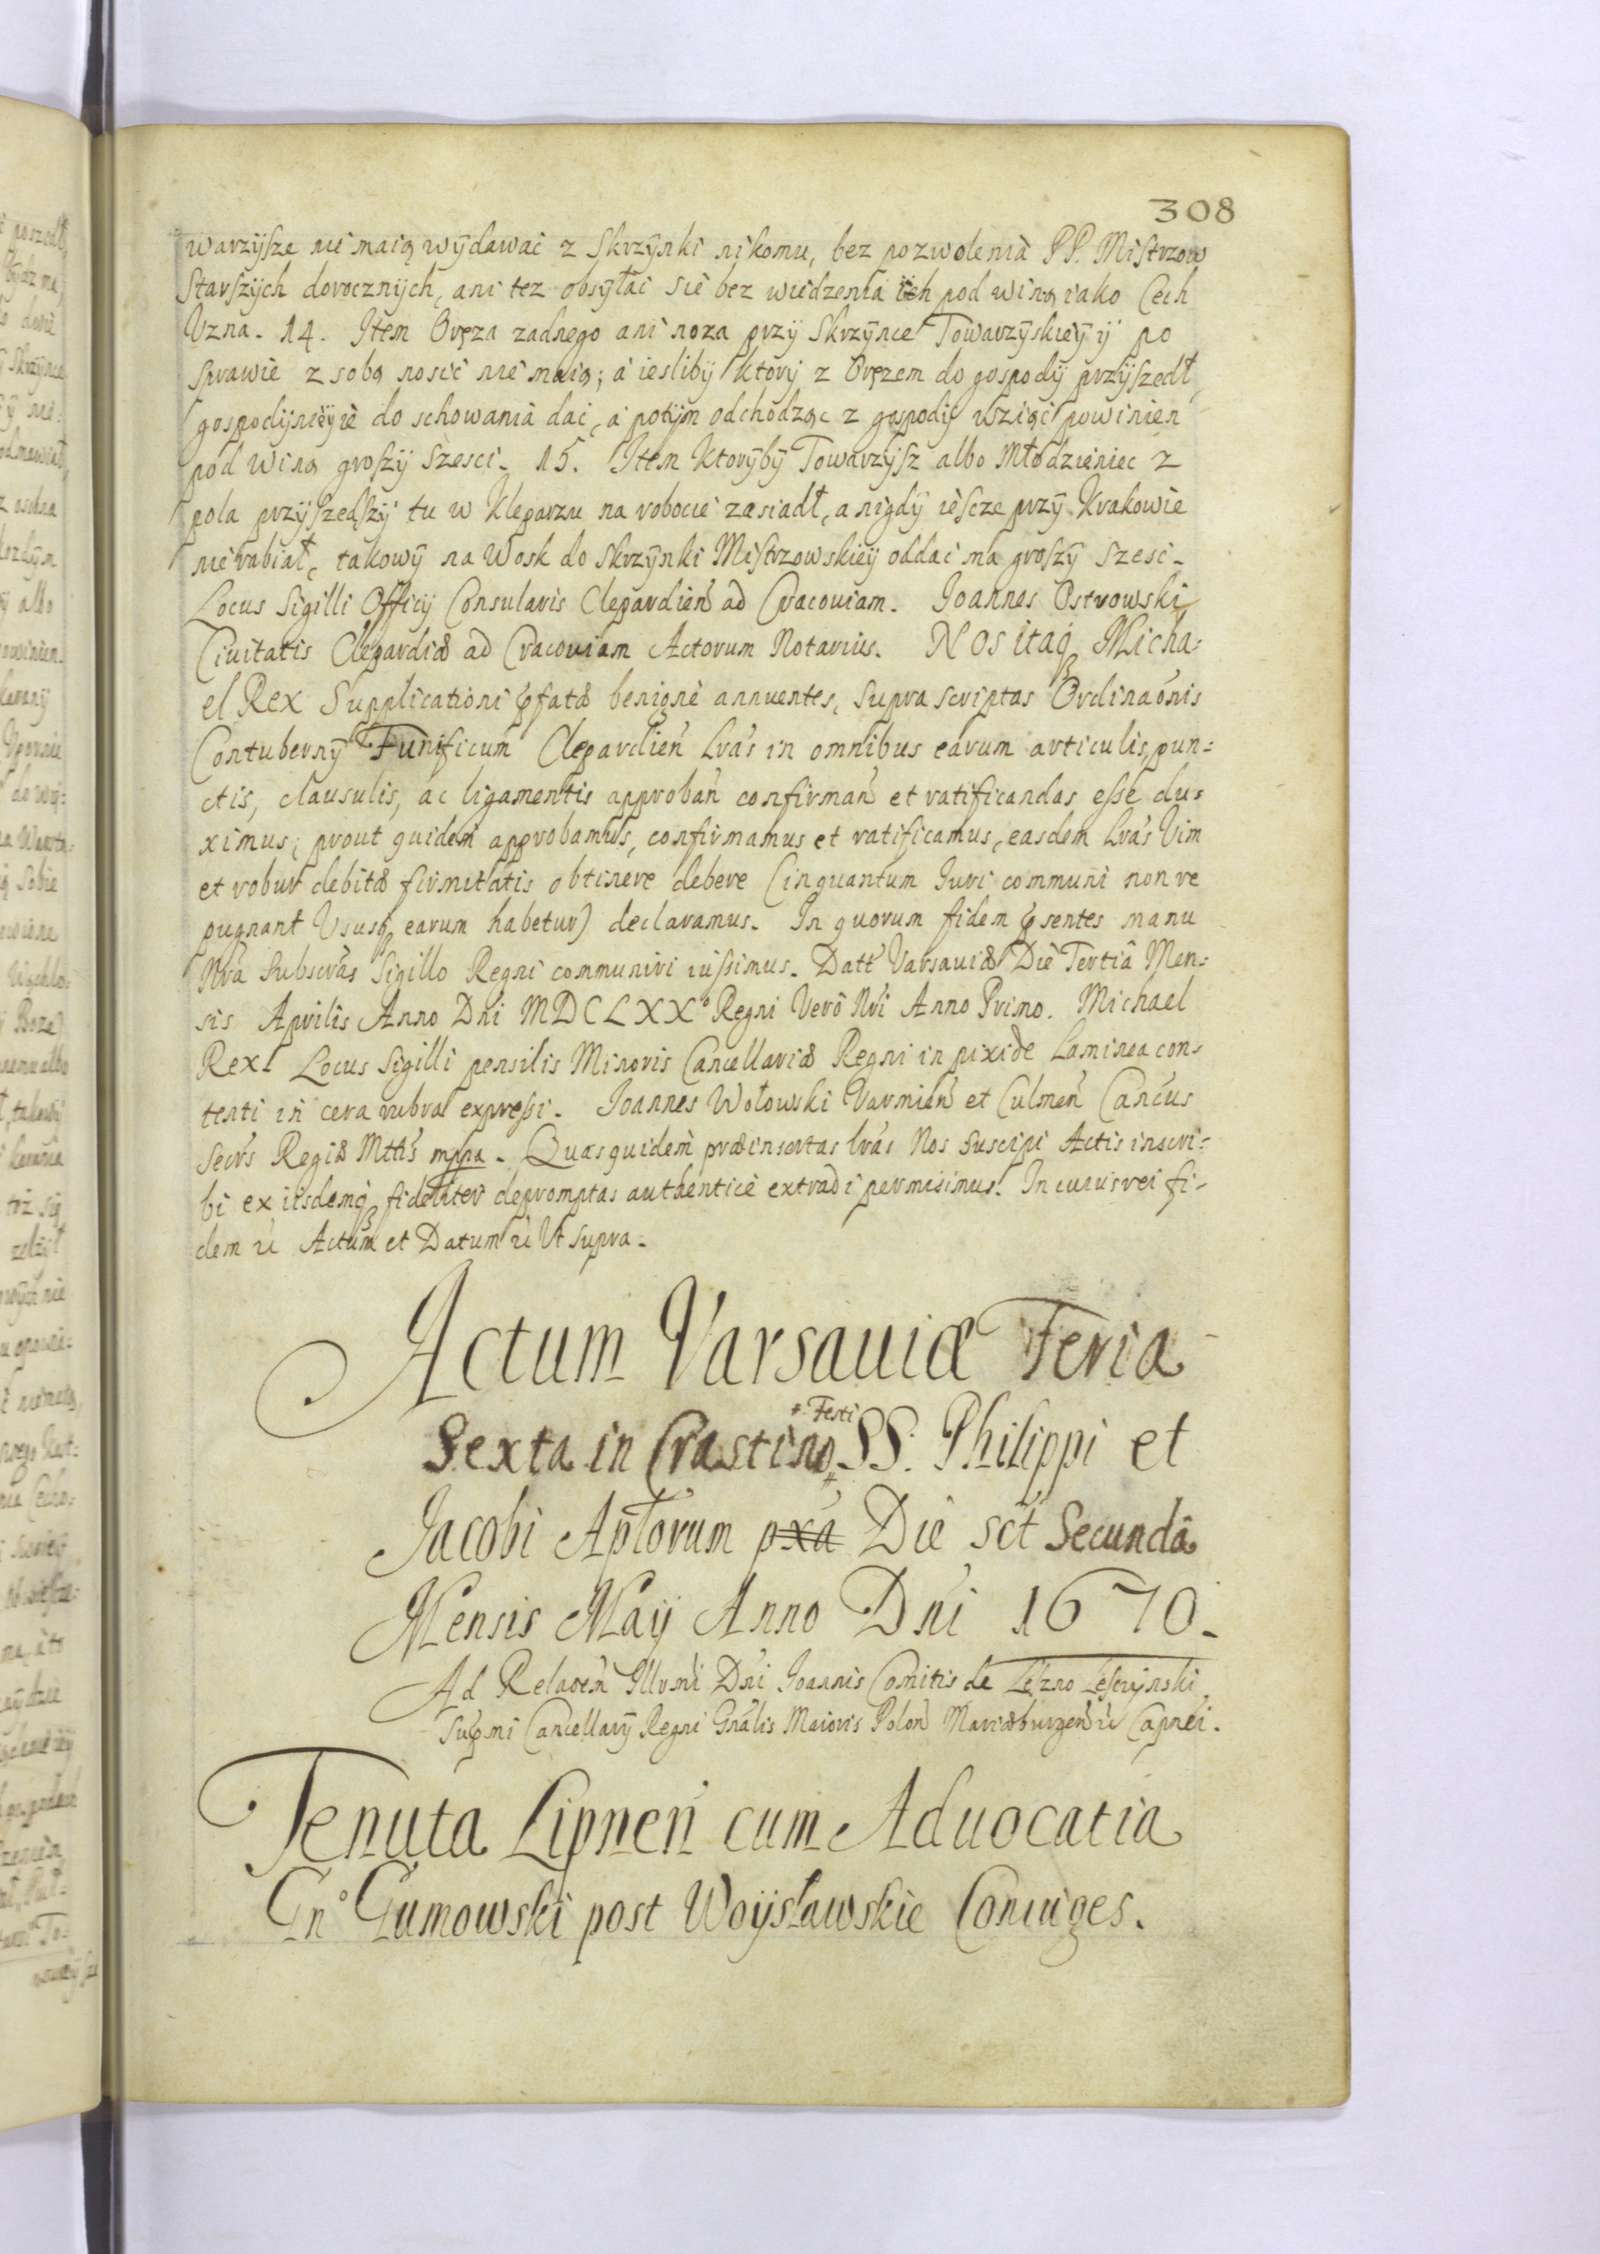 308
warzysze nie maią wydawać z Skrzynki nikomu, bez pozwolenia PP. Mistrzow
Starszych dorocznych, ani tez obsyłać się bez wiedzenia ich pod winą iako Cech
Uzna. 14. Item Oręza zadnego ani noza przy Skrzynce Towarzyskiey y po
sprawie z sobą nosić nie maią; a iesliby ktory z Oręzem do gospody przyszedł,
gospodyniey ie do schowania dać, a potym odchodząc z gospody wziąć powinien
pod winą groszy szesci. 15. Item Ktoryby Towarzysz albo Młodzieniec z
pola przyszedszy tu w Kleparzu na robocie zasiadł, a nigdy iescze przy Krakowie
nie rabiał, takowy na Wosk do Skrzynki Mistrzowskiey oddać ma groszy szesc.
Locus Sigilli Officij Consularis Clepardień ad Cracoviam. Joannes Ostrowski
Civitatis Clepardiæ ad Cracoviam Actorum Notarius. Nos itaq Micha:
el Rex Supplicationi pfatæ benignè annuentes, supra scriptas Ordinaonis
Contubernij Funificum Clepardień Lrás in omnibus earum articulis, pun:
ctis, clausulis, ac ligamentis approbań confirmań et ratificandas esse du:
ximus; prout quidem approbamus, confirmamus et ratificamus, easdem Lrás Vim
et robur debitæ firmitatis obtinere debere (inquantum Juri communi non re
pugnant Ususq earum habetur) declaramus. In quorum fidem psentes manu
Nrá Subscrás Sigillo Regni communiri iussimus. Datt Varsaviæ Die Tertiâ Men:
sis Aprilis Anno Dni MDCLXXº Regni Verò Nri Anno Primo. Michael
Rex. Locus Sigilli pensilis Minoris Cancellariæ Regni in pixide Laminea con:
tenti in cera rubra expressi. Joannes Wołowski Varmień et Culmeń Cancus
Secrs Regiæ Mttis mppa. Quas quidem præinsertas lrás Nos suscipi Actis inscri:
bi ex iisdemq fideliter depromptas authenticè extradi permisimus. In cuius rei fi:
dem & Actum et Datum & Ut supra.
Actum Varsaviæ Feria
Sexta in Crastino # Festi SS. Philippi et
Jacobi Aptorum pxa Die sct Secundâ
Mensis Maij Anno Dni 1670.
Ad Relaoem Illrmi Dni Joannis Comitis de Leszno Lesczynski
Supmi Cancellarij Regni Gnalis Maioris Polon Mariæburgen & Capnei.
Tenuta Lipneń cum Advocatia
Gnº Gumowski post Woysławskie Coniuges.